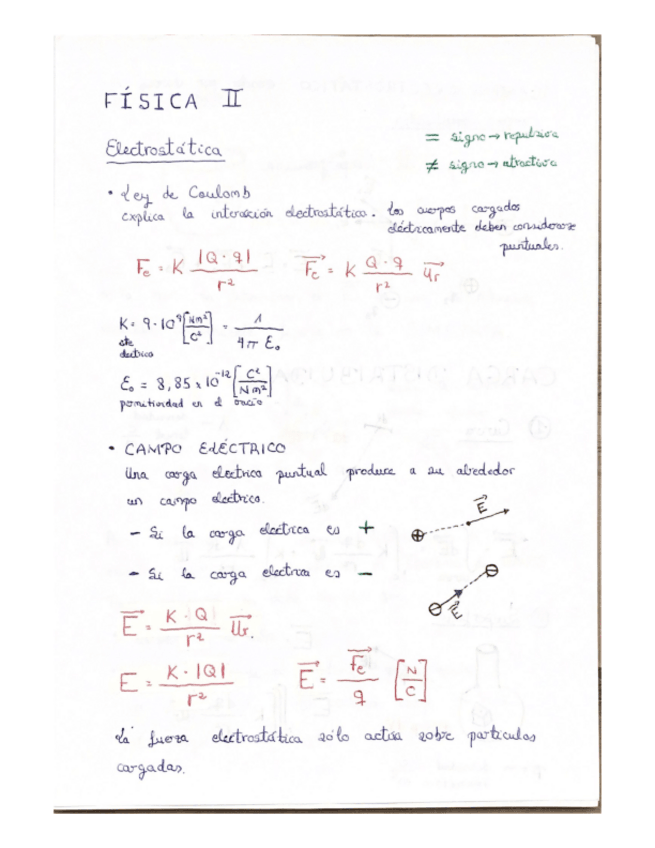 FÍSICA II
Electrostática
= signo → repulsiva
≠ signo → atractiva
• Ley de Coulomb
explica la interacción electrostática. Los cuerpos cargados
eléctricamente deben considerarse
puntuales.
Fe = K |Q · q| / r²    Fe→ = K Q · q / r² ur→
K = 9 · 10⁹ [Nm²/C²] = 1 / 4π ε₀
cte
eléctrica
ε₀ = 8,85 x 10⁻¹² [C²/Nm²]
permitividad en el vacío
• CAMPO ELÉCTRICO
Una carga eléctrica puntual produce a su alrededor
un campo eléctrico.
- Si la carga eléctrica es +
E→
⊕
- Si la carga eléctrica es -
⊖
⊖ E→
E→ = K |Q| / r² ur→.
E = K · |Q| / r²    E→ = Fe→ / q [N/C]
La fuerza electrostática sólo actúa sobre partículas
cargadas.